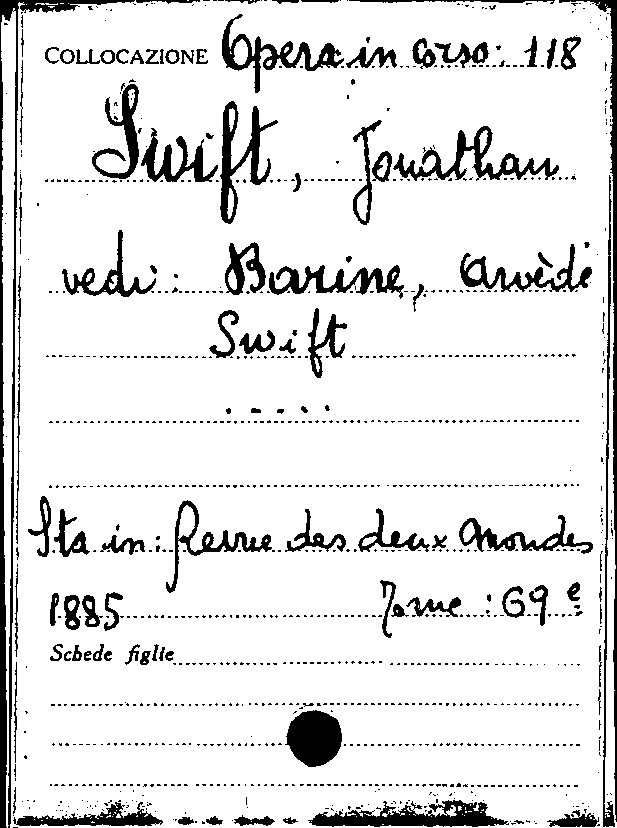 COLLOCAZIONE Opera in corso: 118
Swift, Jonathan
vedi: Barine, Arvède
Swift
.....
Sta in: Revue des deux Mondes
1885 Tome: 69e
Schede figlie